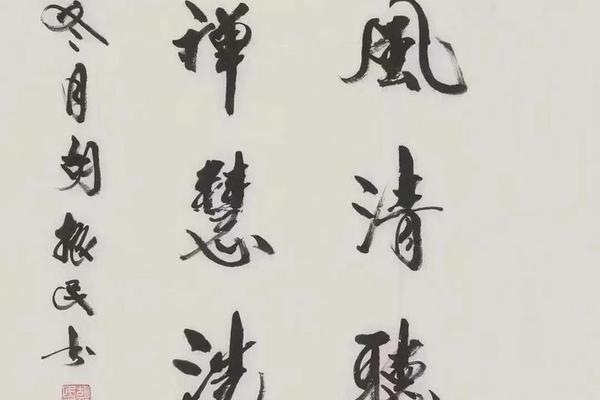 風清聽
禪慧洗
冬月胡振民书